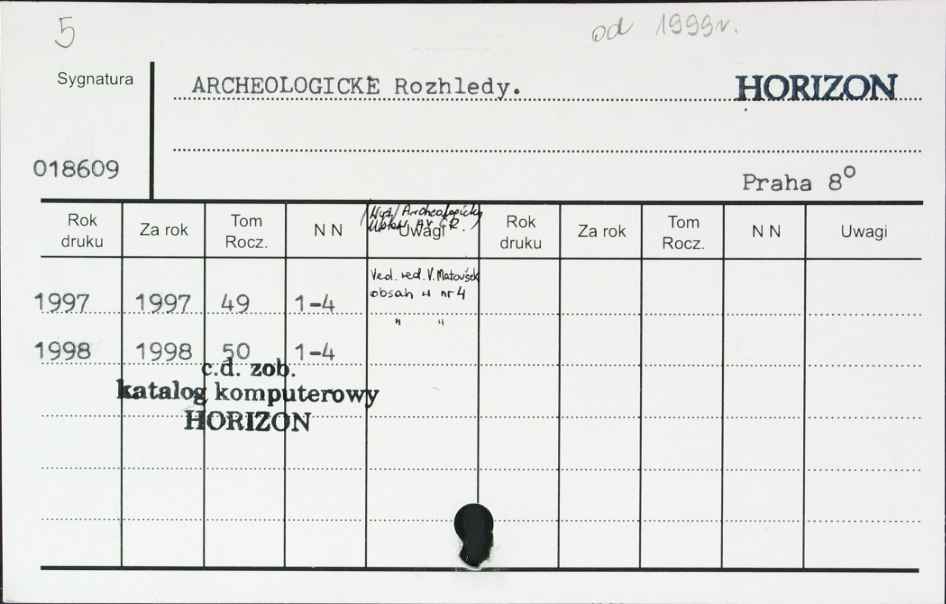 5
od 1999r.
Sygnatura
ARCHEOLOGICKÉ Rozhledy.
HORIZON
018609
Praha 8°
Rok druku Za rok Tom Rocz. N N Uwagi Rok druku Za rok Tom Rocz. N N Uwagi
Archeologický
AV ČR.
Ved. red. V. Matoušek
1997 1997 49 1-4 obsah w nr 4
1998 1998 50 1-4 " "
c.d. zob.
katalog komputerowy
HORIZON